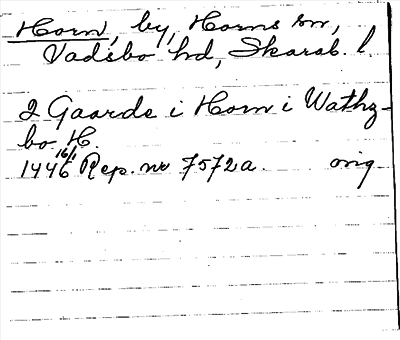 Horn, by, Horns sn,
Vadsbo hd, Skarab. l.
2 Gaarde i Horn i Wathz-
bo H.
1446 16/1 Rep. nr 7572a. orig.